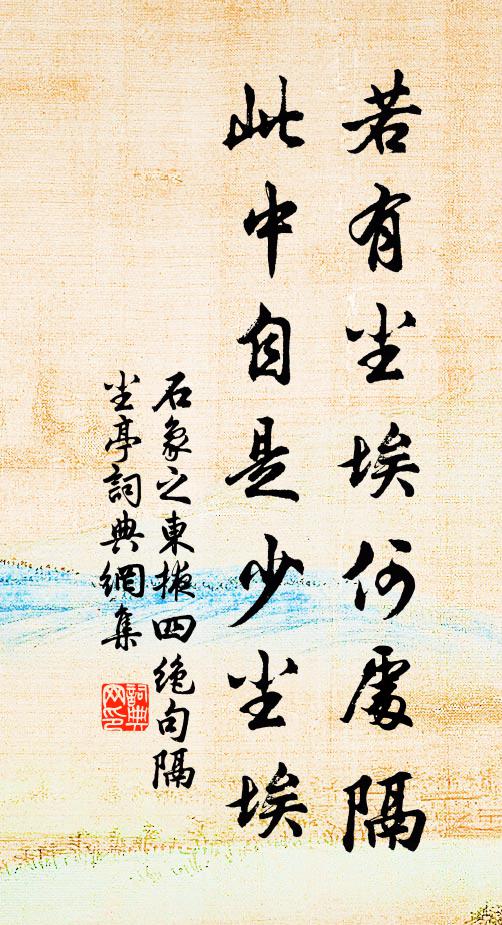 若有尘埃何處隔
此中自是少尘埃
石象之東掖四絶句隔
尘亭詞典網集
詞典
网印